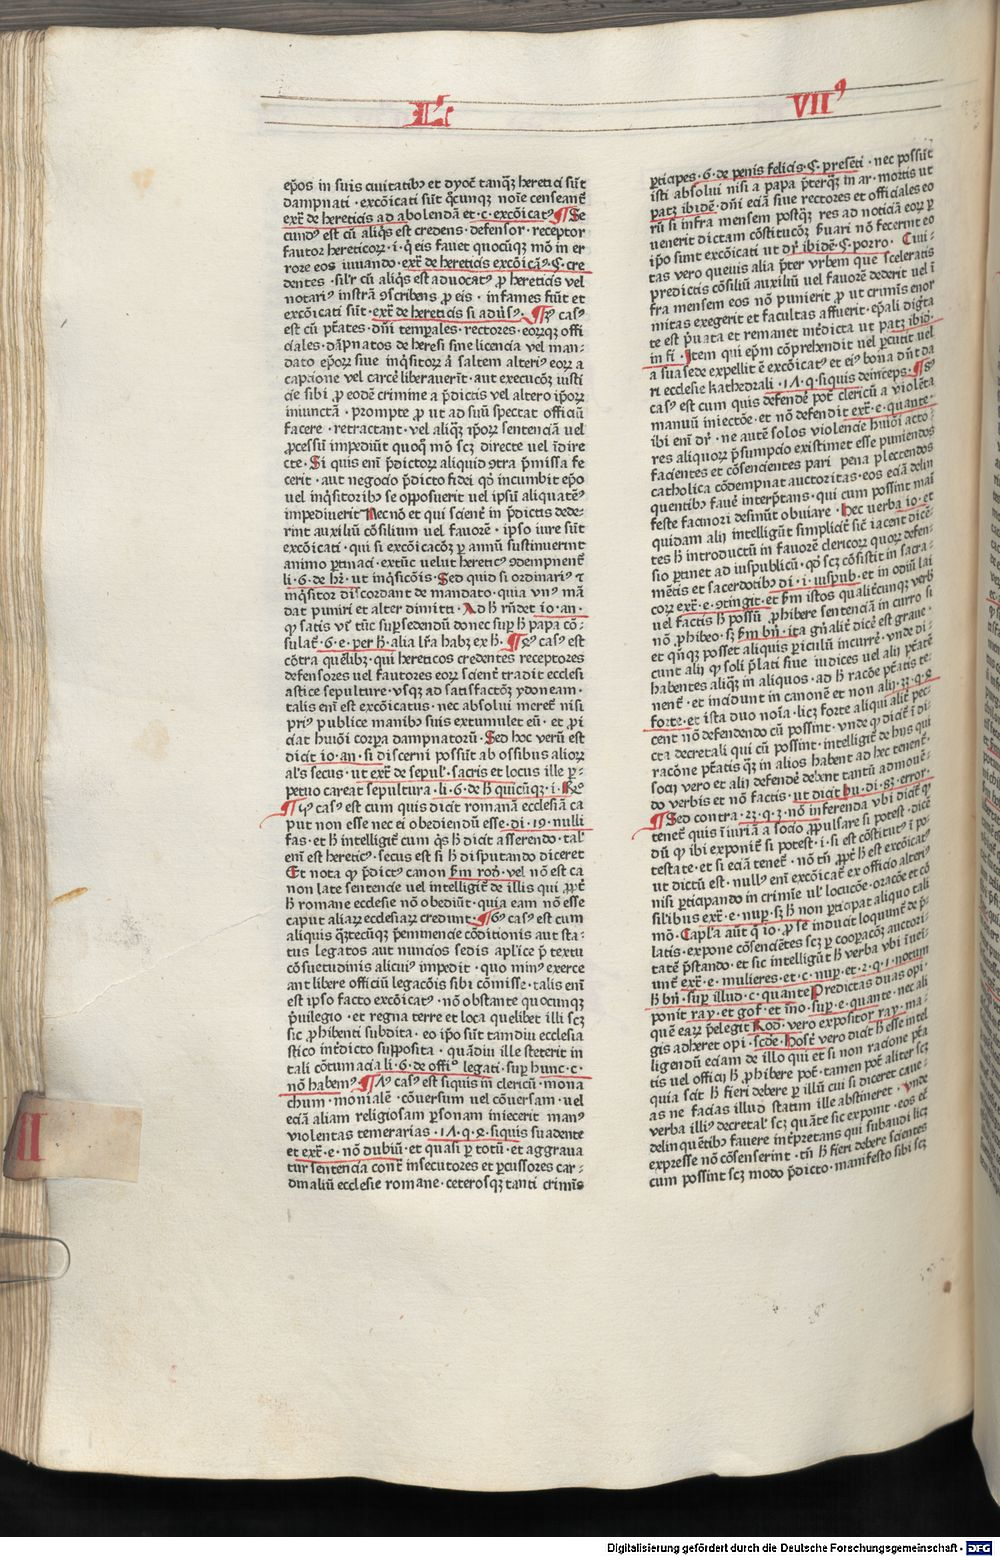 L&#x27; VII⁹
ep̄os in suis ciuitatibꝫ et dyoc̄ tanq̄ꝫ heretici sūt
dampnati · excōicati sūt q̄cunqꝫ noīe censeant᷑
ext᷑ de hereticis ad abolendā et · c · excōicat᷑ ¶ Se
cund⁹ est cū aliq̄s est credens · defensor · receptor
fautor hereticoꝝ · i · q̄ eis fauet quocūqꝫ mō in er
rore eos iuuando · ext᷑ de hereticis excōicam⁹ · C · cre
dentes · silr cū aliq̄s est aduocat⁹ ꝓ hereticis vel
notari⁹ instrā ꝯscribens ꝓ eis · infames fiūt et
excōicati sūt · ext᷑ de hereticis si adūs⁹ · ¶ 3⁹ cas⁹
est cū ptātes · dn̄i temꝑales · rectores · eoꝝqꝫ offi
ciales · dāpnatos de heresi sine licencia vel man-
dato ep̄oꝝ siue inq̄sitoꝝ a saltem alteri⁹ eoꝝ a
captione vel carcē liberauerīt · aut execucōꝫ iusti
cie sibi ꝓ eodē crimine a p̄dictis vel altero ip̄oꝝ
iniunctā · prompte ꝓ ut ad suū spectat officiū
facere · retractant · vel aliq̄ꝫ ip̄oꝝ sentenciā uel
ꝓcessū impediūt quoq̄ mō scꝫ directe uel īdire
cte · Si quis enī p̄dictoꝝ aliquid ꝯtra p̄missa fe
cerit · aut negocio p̄dicto fidei qd̄ incumbit ep̄o
uel inq̄sitoribꝫ se opposuerit uel ipsū aliquaten⁹
impediuerit Necnō et qui scient᷑ in p̄dictis dede-
rint auxiliū cōsilium uel fauorē · ipso iure sūt
excōicati · qui si excōicacōꝫ ꝑ annū sustinuerint
animo ꝑtinaci · extūc uelut heretic⁹ ꝯdempnent᷑
li · 6 · de hr̄ · ut inq̄sicōis · Sed quid si ordinari⁹ et
inq̄sitor discordant de mandato · quia vn⁹ mā
dat puniri et alter dimitti · Ad h̄ rn̄det io · an ·
ꝙ satis vr̄ tūc suꝑsedendū donec suꝑ h̄ papa cō-
sulat᷑ · 6 · e · per h̄ · alia lr̄a habꝫ ex h̄ · ¶ 4⁹ cas⁹ est
cōtra quēlibꝫ · qui hereticos credentes receptores
defensores uel fautores eoꝝ scient᷑ tradit ecclesi
astice sepulture · vsqꝫ ad satisfactōꝫ ydoneam ·
talis enī est excōicatus · nec absolui meret᷑ nisi
pri⁹ publice manibꝫ suis extumulet eū · et ꝓi
ciat huiōi corꝑa dampnatorū · Sed hoc verū est
dicit io · an · si discerni possūt ab ossibus alioꝝ
als secus · ut ext᷑ de sepul · sacris et locus ille ꝑ-
petuo careat sepultura · li · 6 · de h̄ quicūqꝫ · i · Rº
¶ 5⁹ cas⁹ est cum quis dicit romanā ecclesiā ca
put non esse nec ei obediendū esse · di · 19 · nulli
fas · et h̄ intelligit᷑ cum q̄s h̄ dicit asserendo · tal᷑
enī est heretic⁹ · secus est si h̄ disputando diceret
Et nota ꝙ p̄dict⁹ canon s̄m rod̄ · vel nō est ca
non late sentencie uel intelligit᷑ de illis qui ꝓpt᷑
h̄ romane ecclesie nō obediūt · quia eam nō esse
caput aliaꝝ ecclesiaꝝ credunt · ¶ 6⁹ cas⁹ est cum
aliquis q̄ꝫtecūqꝫ p̄eminencie cōditionis aut sta-
tus legatos aut nuncios sedis apl̄ice p̄ textu
cōsuetudinis alicui⁹ impedit · quo min⁹ exerce
ant libere officiū legacōis sibi cōmisse · talis enī
est ipso facto excōicat⁹ · nō obstante quocunqꝫ
p̄uilegio · et regna terre et loca quelibet illi scꝫ
sic ꝓhibenti subdita · eo ip̄o sūt tamdiu ecclesia
stico int᷑dicto supposita · quādiu ille steterit in
tali cōtumacia li · 6 · de offi⁰ legati · suꝑ hunc · c ·
nō habem⁹ ¶ 7⁹ cas⁹ est siquis in clericū · mona
chum · monialē · cōuersum uel cōuersam · uel
eciā aliam religiosam ꝑsonam iniecerit man⁹
violentas temerarias · 17 · q · 4 · siquis suadente
et ext᷑ · e · nō dubiū · et quasi ꝑ totū · et aggraua
tur sentencia cont᷑ insecutores et ꝑcussores car-
dinaliū ecclesie romane · ceterosqꝫ tanti crimīs
ꝑticipes · 6 · de penis felicis · C · presēti · nec possūt
isti absolui nisi a papa p̄terqꝫ in ar · mortis ut
patꝫ ibidē · dn̄i eciā siue rectores et officiales eo
rū si infra mensem postqꝫ res ad noticiā eoꝝ ꝑ
uenerit dictam cōstitucōꝫ ẜuari nō fecerint eo
ip̄o sunt excōicati ut dr̄ ibidē · C · porro · Ciui-
tas vero queuis alia p̄ter vrbem que sceleratis
predictis cōsiliū auxiliū uel fauorē dederit uel ī
fra mensem eos nō punierit ꝓ ut crimīs enor
mitas exegerit et facultas affuerit · ep̄ali digīta
te est p̄uata et remanet int᷑dicta ut patꝫ ibid ·
in fi · Item qui ep̄m cōprehendit uel ꝑcutit uel
a sua sede expellit ē excōicat⁹ et ei⁹ bona dn̄t da
ri ecclesie kathedrali · 17 · q · siquis deinceps · ¶ 8⁹
cas⁹ est cum quis defendē pot᷑ clericū a violēta
manuū iniectōe · et nō defendit ext᷑ · e · quante ·
ibi enī dr̄ · ne autē solos violencie huiōi acto-
res aliquoꝝ p̄sumpcio existimet esse puniendos
facientes et cōsencientes pari pena plectendos
catholica cōdempnat auctoritas · eos eciā delin
quentibꝫ fauē interp̄tans · qui cum possint mai
feste facinori desinūt obuiare · Hec uerba io · et
quidam alij intelligūt simplicit᷑ sic̄ iacent dicē-
tes h̄ introductū in fauorē clericoꝝ quoꝝ defen-
sio ꝑtinet ad ius publicū · qd̄ scꝫ cōsistit in sacra-
mētis et sacerdotibꝫ di · i · ius pub · et in odiū lai
coꝝ ext᷑ · e · ꝯtingit · et s̄m istos qualit᷑cunqꝫ verb
uel factis h̄ possū ꝓhibere sentenciā in curro si
nō ꝓhibeo · sꝫ s̄m bn̄ · ita gn̄alit᷑ dicē est graue ·
et qn̄qꝫ posset aliquis ꝑiculū incurrē · vnde di-
cunt alij ꝙ soli p̄lati siue iudices uel alij ptātē
habentes aliqꝫ in aliquos · ad h̄ racōe ptātis te-
nent᷑ · et incidunt in canonē et non alij · 23 · q · 8
forte · et ista duo noīa · licꝫ forte aliqui alit᷑ pec-
cent nō defendendo cū possint · vnde ꝙ dicit᷑ ī di-
cta decretali qui cū possint · intelligit᷑ de hijs qui
racōne ptātis qꝫ in alios habent ad hec tenent᷑ ·
socij vero et alij defendē debent tantū admouē-
do verbis et nō factis · ut dicit hu · di · 83 · error ·
¶ Sed contra · 23 · q · 3 · nō inferenda vbi dicit᷑ ꝙ
tenet᷑ quis iniuriā a socio ꝓpulsare si potest · dicē
dū ꝙ ibi exponit᷑ si potest · i · si est cōstitut⁹ ī po-
testate · et si eciā tenet᷑ · nō tn̄ ꝓpt᷑ h̄ est excōicat⁹
ut dictū est · null⁹ enī excōicat᷑ ex officio alteri⁹
nisi ꝑticipando in crimīe ul᷑ locucōe · oracōe et cō
silibus ext᷑ · e · nuꝑ · sꝫ h̄ non ꝑticipat aliquo tali
mō · Capl̄a aūt q̄ io · ꝓ se inducit loquunt᷑ de p̄-
latis · expone cōsenciētes scꝫ ꝑ cooꝑacōꝫ auctori-
tatē p̄stando · et sic intelligūt h̄ verba vbi īuei-
unt᷑ ext᷑ · e · mulieres · et · c · nuꝑ · et · 2 · q · 1 · notum
h̄ bn̄ · suꝑ illud · c · quante Predictas duas opi ·
ponit ray · et gof · et in̄o · suꝑ · e · quante · nec ali
quē eaꝝ p̄elegit Rod̄ · vero expositor ray · ma-
gis adheret opi · sc̄de · Host᷑ vero dicit h̄ esse intel
ligendū eciam de illo qui et si non racione ptā
tis uel officij h̄ ꝓhibere pot᷑ · tamen pot᷑ aliter scꝫ
quia scit h̄ fieri debere ꝑ illū cui si diceret caue-
as ne facias illud statim ille abstineret · vnde
verba illi⁹ decretal᷑ scꝫ quāte sic exponit · eos et᷑
delinquētibꝫ fauere int᷑p̄retans qui subaudi licꝫ
expresse nō cōsenserint · tn̄ h̄ fieri debere scientes
cum possint scꝫ modo p̄dicto · manifesto sibi scꝫ
II
Digitalisierung gefördert durch die Deutsche Forschungsgemeinschaft - DFG